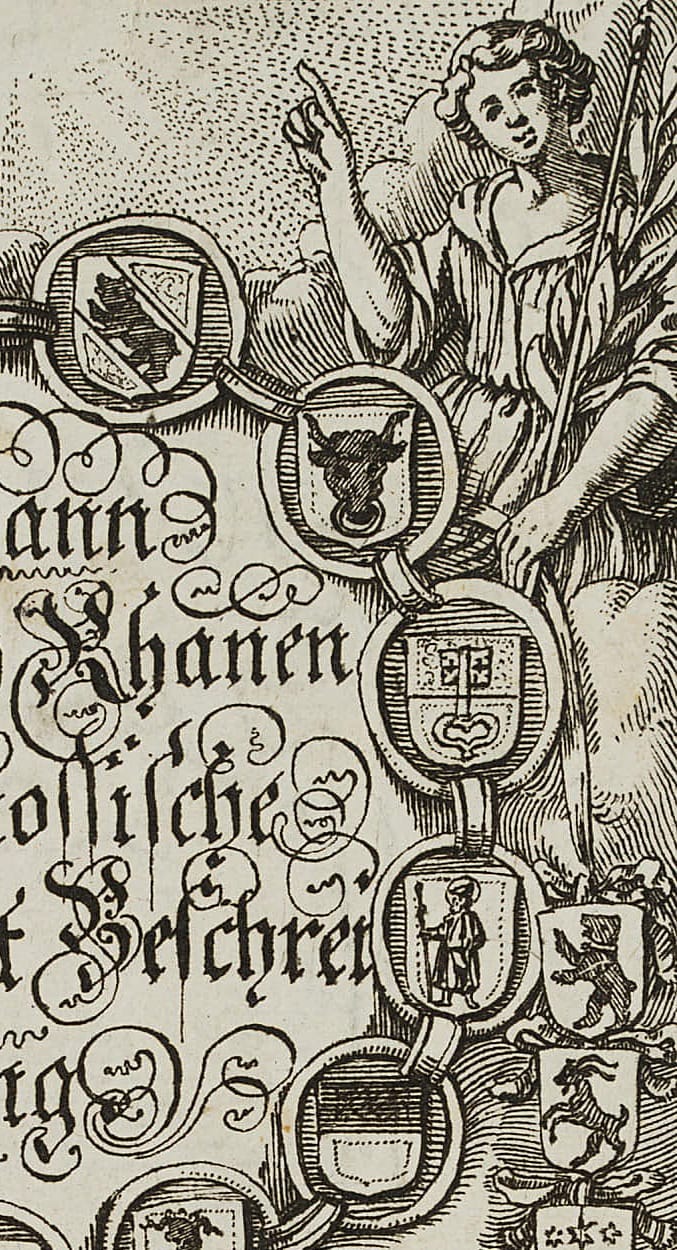 ann
Rhanen
ossische
t Beschrei
ng